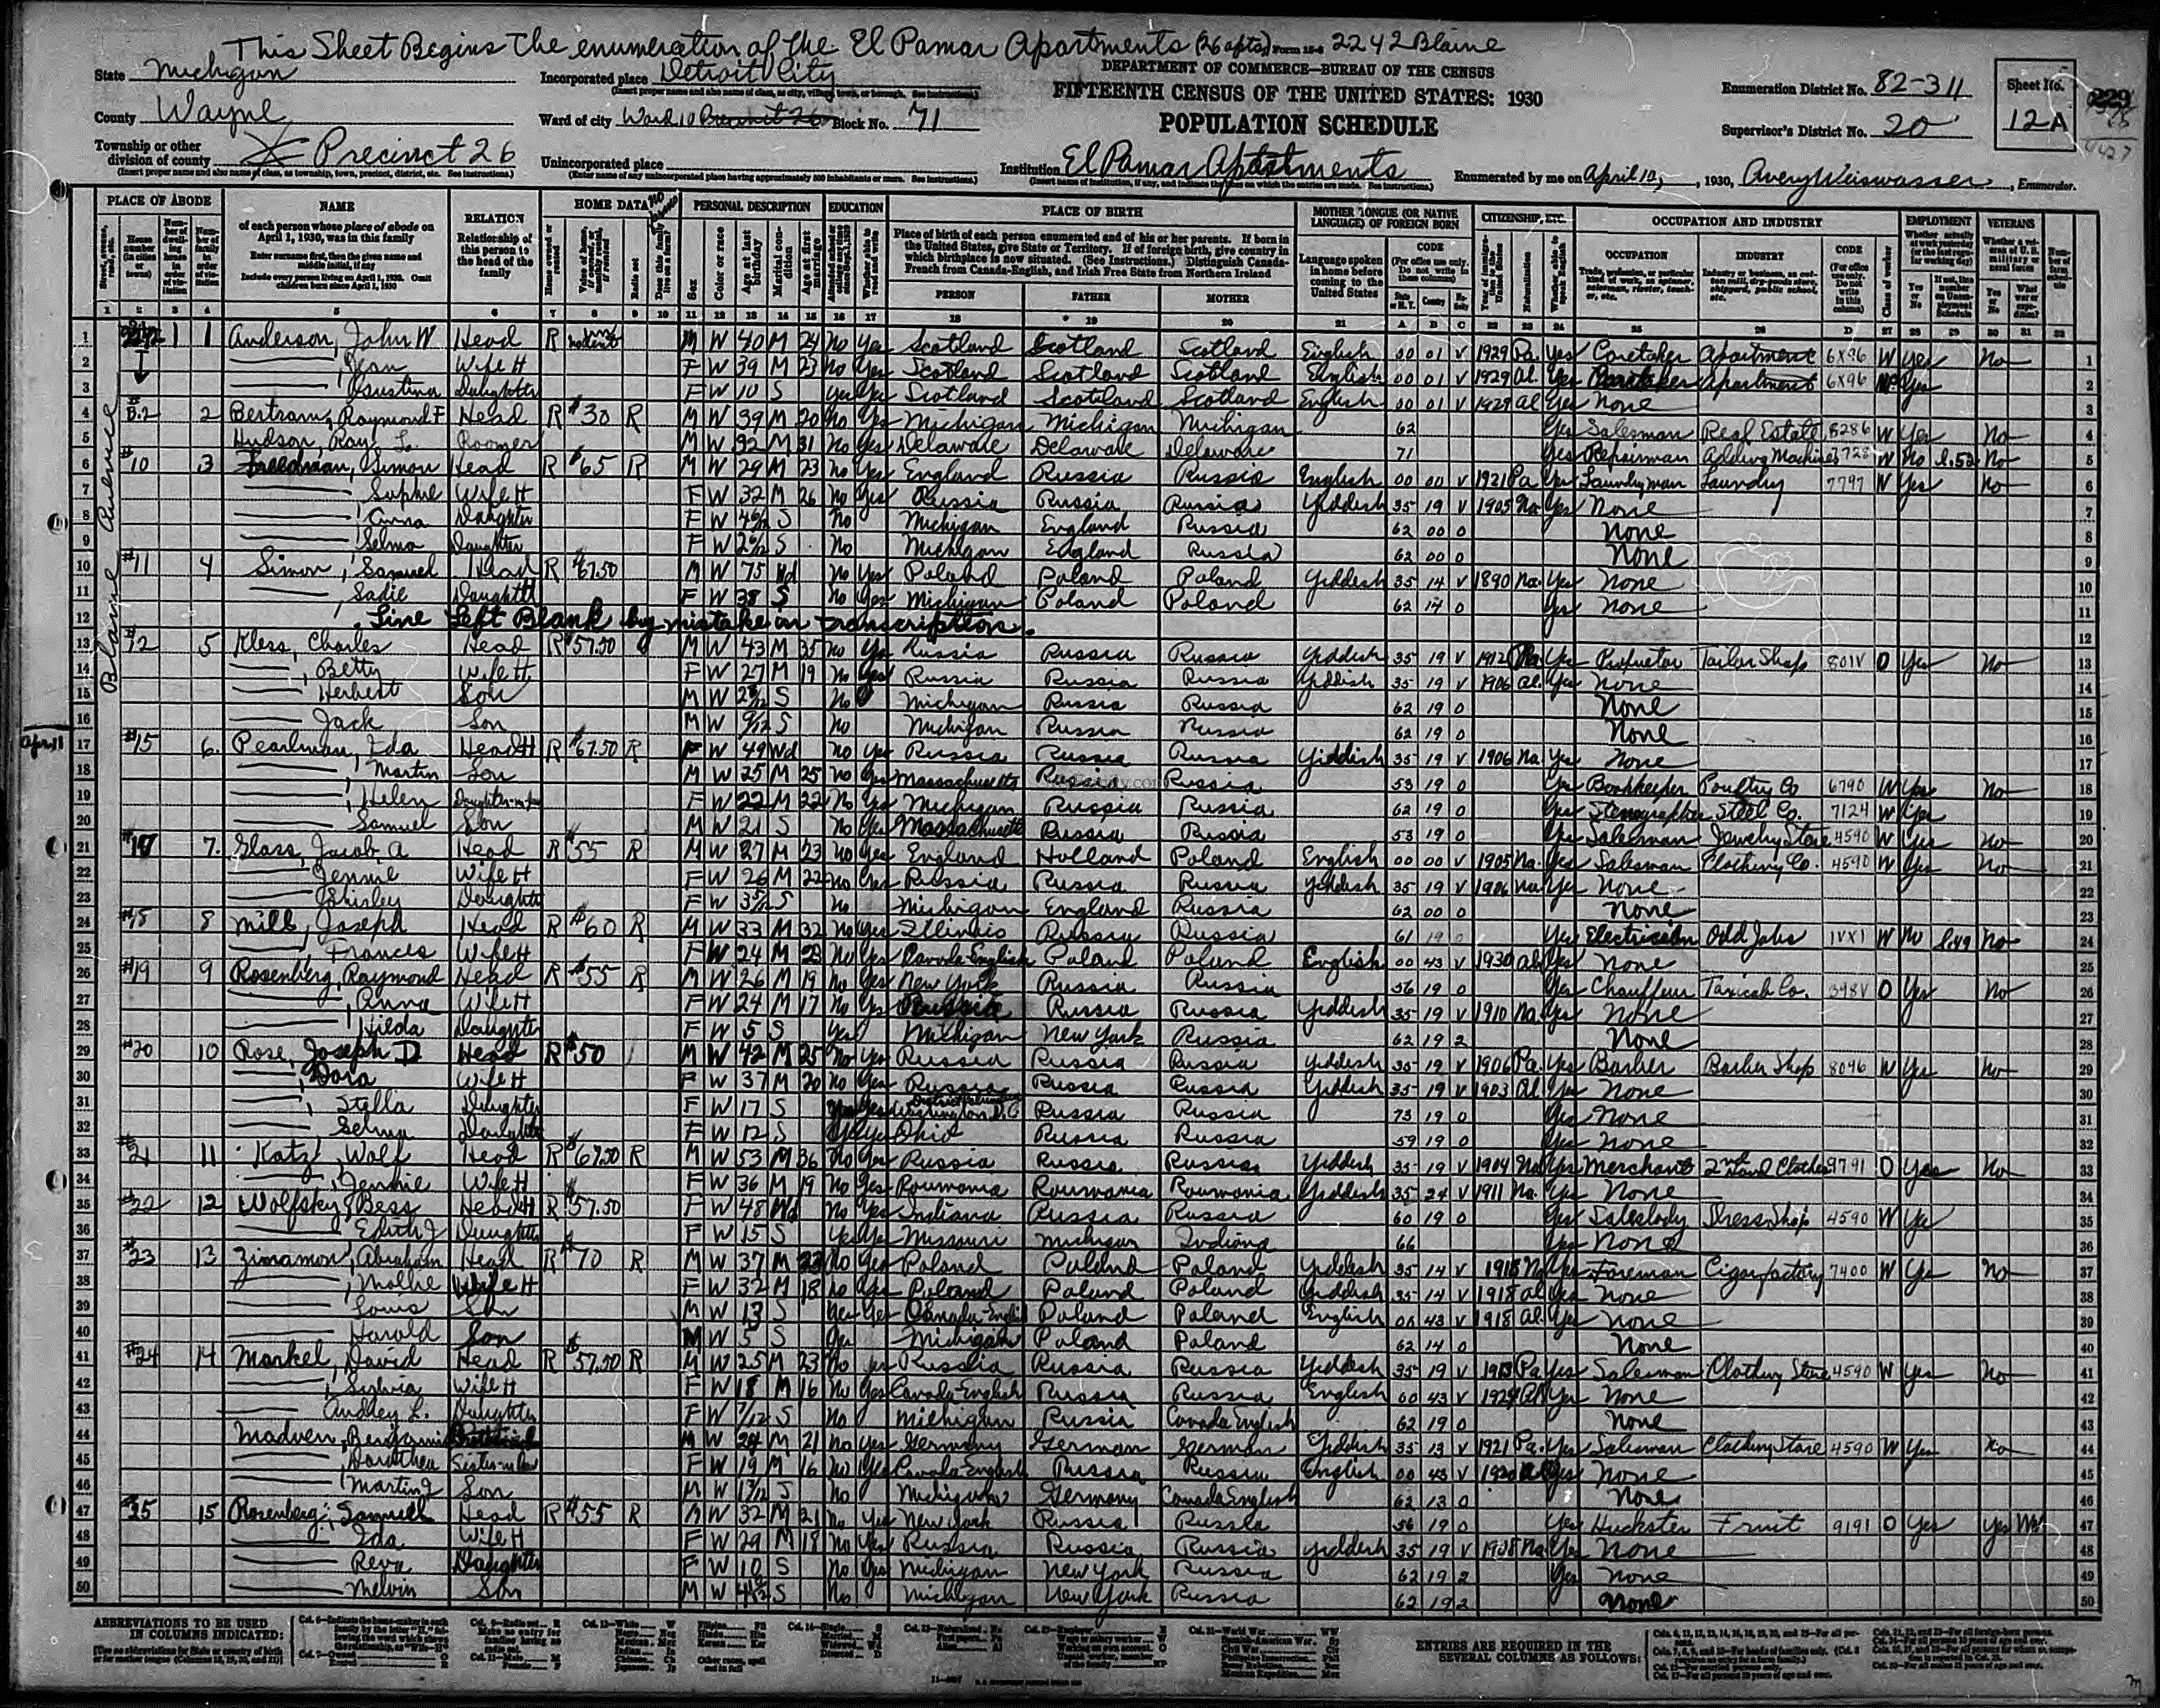 This Sheet Begins The enumeration of the El Pamar Apartments (26 apts) Form 15-6 2242 Blaine
State Michigan Incorporated place Detroit City DEPARTMENT OF COMMERCE—BUREAU OF THE CENSUS
(Insert proper name and also name of class, as city, village, town, or borough. See instructions.)
FIFTEENTH CENSUS OF THE UNITED STATES: 1930 Enumeration District No. 82-311 Sheet No.
County Wayne Ward of city Ward 10 Precinct 26 Block No. 71 POPULATION SCHEDULE Supervisor's District No. 20 12A
Township or other division of county X Precinct 26 Unincorporated place Institution El Pamar Apartments Enumerated by me on April 10, 1930, Avery Weiswasser, Enumerator.
PLACE OF ABODE NAME RELATION HOME DATA PERSONAL DESCRIPTION EDUCATION PLACE OF BIRTH MOTHER TONGUE (OR NATIVE LANGUAGE) OF FOREIGN BORN CITIZENSHIP, ETC. OCCUPATION AND INDUSTRY EMPLOYMENT VETERANS
of each person whose place of abode on April 1, 1930, was in this family
Enter surname first, then the given name and middle initial, if any
Include every person living on April 1, 1930. Omit children born since April 1, 1930
Relationship of this person to the head of the family
Place of birth of each person enumerated and of his or her parents. If born in the United States, give State or Territory. If of foreign birth, give country in which birthplace is now situated. (See Instructions.) Distinguish Canada-French from Canada-English, and Irish Free State from Northern Ireland
PERSON FATHER MOTHER
Language spoken in home before coming to the United States
CODE OCCUPATION INDUSTRY CODE
Blaine Avenue
1 1 1 Anderson, John W Head R M W 40 M 24 No Yes Scotland Scotland Scotland English 00 01 V 1929 Pa Yes Caretaker Apartment 6X96 W Yes No 1
2 Jean Wife H F W 39 M 23 No Yes Scotland Scotland Scotland English 00 01 V 1929 Al Yes Caretaker Apartment 6X96 Yes 2
3 Daughter F W 10 S Yes Yes Scotland Scotland Scotland English 00 01 V 1929 Al Yes None 3
4 B.2 2 Bertram, Raymond F Head R $30 R M W 39 M 20 No Yes Michigan Michigan Michigan 62 Yes Salesman Real Estate 8286 W Yes No 4
5 Hudson, Ray L. Roomer M W 32 M 31 No Yes Delaware Delaware Delaware 71 Yes Repairman Adding Machines W No No 5
6 #10 3 Freedman, Simon Head R $65 R M W 29 M 23 No Yes England Russia Russia English 00 00 V 1921 Pa Yes Laundryman Laundry 7797 W Yes No 6
7 Sophie Wife H F W 32 M 26 No Yes Russia Russia Russia Yiddish 35 19 V 1905 Na Yes None 7
8 Anna Daughter F W S No Michigan England Russia 62 00 0 None 8
9 Selma Daughter F W S No Michigan England Russia 62 00 0 None 9
10 #11 4 Simon, Samuel Head R $67.50 M W 75 Wd No Yes Poland Poland Poland Yiddish 35 14 V 1890 Na Yes None 10
11 Sadie Daughter F W 38 S No Yes Michigan Poland Poland 62 14 0 Yes None 11
12 Line Left Blank by mistake in transcription. 12
13 5 Kless, Charles Head R $57.50 M W 43 M 35 No Yes Russia Russia Russia Yiddish 35 19 V 1912 Na Yes Proprietor Tailor Shop 801V O Yes No 13
14 Betty Wife H F W 27 M 19 No Yes Russia Russia Russia Yiddish 35 19 V 1906 Al Yes None 14
15 Herbert Son M W S No Michigan Russia Russia 62 19 0 None 15
16 Jack Son M W S No Michigan Russia Russia 62 19 0 None 16
April 11 17 #15 6 Pearlman, Ida Head H R $67.50 R F W 49 Wd No Yes Russia Russia Russia Yiddish 35 19 V 1906 Na Yes None 17
18 Martin Son M W 25 M 25 No Yes Massachusetts Russia Russia 53 19 0 Yes Bookkeeper Poultry Co 6790 W Yes No 18
19 Helen Daughter-in-law F W 22 M 22 No Yes Michigan Russia Russia 62 19 0 Yes Stenographer Steel Co. 7124 W Yes 19
20 Samuel Son M W 21 S No Yes Massachusetts Russia Russia 53 19 0 Yes Salesman Jewelry Store 4590 W Yes No 20
21 #17 7 Glass, Jacob A Head R $55 R M W 27 M 23 No Yes England Holland Poland English 00 00 V 1905 Na Yes Salesman Clothing Co. 4590 W Yes No 21
22 Jennie Wife H F W 26 M 22 No Yes Russia Russia Russia Yiddish 35 19 V 1906 Na Yes None 22
23 Shirley Daughter F W S No Michigan England Russia 62 00 0 None 23
24 #18 8 Mills, Joseph Head R $60 R M W 33 M 32 No Yes Illinois Russia Russia 61 19 0 Yes Electrician Odd Jobs 1VX1 W No No 24
25 Frances Wife H F W 24 M 23 No Yes Canada-English Poland Poland English 00 43 V 1930 Al Yes None 25
26 #19 9 Rosenberg, Raymond Head R $55 R M W 26 M 19 No Yes New York Russia Russia 56 19 0 Yes Chauffeur Taxicab Co. 398V O Yes No 26
27 Anna Wife H F W 24 M 17 No Yes Russia Russia Russia Yiddish 35 19 V 1910 Na Yes None 27
28 Hilda Daughter F W 5 S Yes Michigan New York Russia 62 19 2 None 28
29 #20 10 Rose, Joseph D Head R $50 M W 42 M 25 No Yes Russia Russia Russia Yiddish 35 19 V 1906 Pa Yes Barber Barber Shop 8096 W Yes No 29
30 Dora Wife H F W 37 M 20 No Yes Russia Russia Russia Yiddish 35 19 V 1903 Al Yes None 30
31 Stella Daughter F W 17 S Yes Yes Washington D.C Russia Russia 73 19 0 Yes None 31
32 Selma Daughter F W 12 S Yes Yes Ohio Russia Russia 59 19 0 Yes None 32
33 #21 11 Katz, Wolf Head R $67.50 R M W 53 M 36 No Yes Russia Russia Russia Yiddish 35 19 V 1904 Na Yes Merchant 2nd Hand Clothes 9791 O Yes No 33
34 Jennie Wife H F W 36 M 19 No Yes Roumania Roumania Roumania Yiddish 35 24 V 1911 Na Yes None 34
35 #22 12 Wolfsky, Bess Head H R $57.50 F W 48 Wd No Yes Indiana Russia Russia 60 19 0 Yes Saleslady Dress Shop 4590 W Yes 35
36 Edith J Daughter F W 15 S Yes Yes Missouri Michigan Indiana 66 Yes None 36
37 #23 13 Zinamon, Abraham Head R $70 R M W 37 M 23 No Yes Poland Poland Poland Yiddish 35 14 V 1918 Na Yes Foreman Cigar factory 7400 W Yes No 37
38 Mollie Wife H F W 32 M 18 No Yes Poland Poland Poland Yiddish 35 14 V 1918 Al Yes None 38
39 Louis Son M W 13 S Yes Yes Canada-English Poland Poland English 00 43 V 1918 Al Yes None 39
40 Harold Son M W 5 S Yes Michigan Poland Poland 62 14 0 None 40
41 #24 14 Markel, David Head R $57.50 R M W 25 M 23 No Yes Russia Russia Russia Yiddish 35 19 V 1913 Pa Yes Salesman Clothing Store 4590 W Yes No 41
42 Sylvia Wife H F W 18 M 16 No Yes Canada-English Russia Russia English 00 43 V Al Yes None 42
43 Audley L. Daughter F W S No Michigan Russia Canada English 62 19 0 None 43
44 Madven, Benjamin M W 24 M 21 No Yes Germany German German Yiddish 35 13 V 1921 Pa Yes Salesman Clothing Store 4590 W Yes No 44
45 Dorothea Sister-in-law F W 19 M 16 No Yes Canada-English Russia Russia English 00 43 V Al Yes None 45
46 Martin J Son M W S No Michigan Germany Canada English 62 13 0 None 46
47 15 Rosenberg, Samuel Head R $55 R M W 32 M 21 No Yes New York Russia Russia 56 19 0 Yes Huckster Fruit 9191 O Yes Yes WW 47
48 Ida Wife H F W 29 M 18 No Yes Russia Russia Russia Yiddish 35 19 V 1908 Na Yes None 48
49 Reva Daughter F W 10 S No Yes Michigan New York Russia 62 19 2 Yes None 49
50 Melvin Son M W S No Michigan New York Russia 62 19 2 None 50
ABBREVIATIONS TO BE USED IN COLUMNS INDICATED:
ENTRIES ARE REQUIRED IN THE SEVERAL COLUMNS AS FOLLOWS: